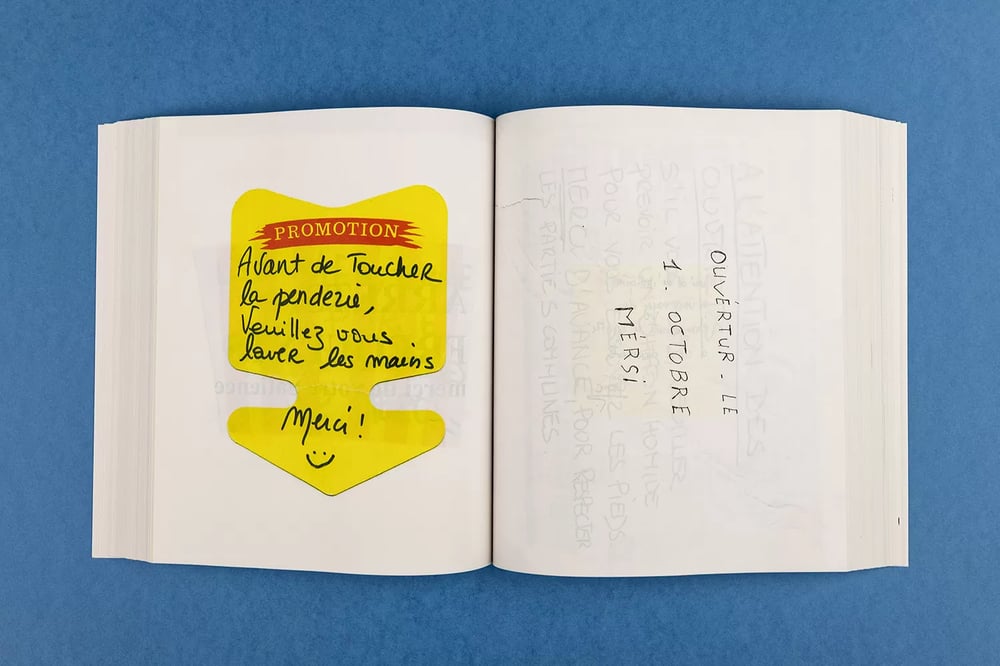 PROMOTION
Avant de Toucher
la penderie,
Veuillez vous
laver les mains
Merci !
OUVÉRTUR. LE
1. OCTOBRE
MÉRSI
A L'ATTENTION DES
S'IL
POUR LES PIEDS
MERCI D'AVANCE, POUR RESPECTER
LES PARTIES COMMUNES.